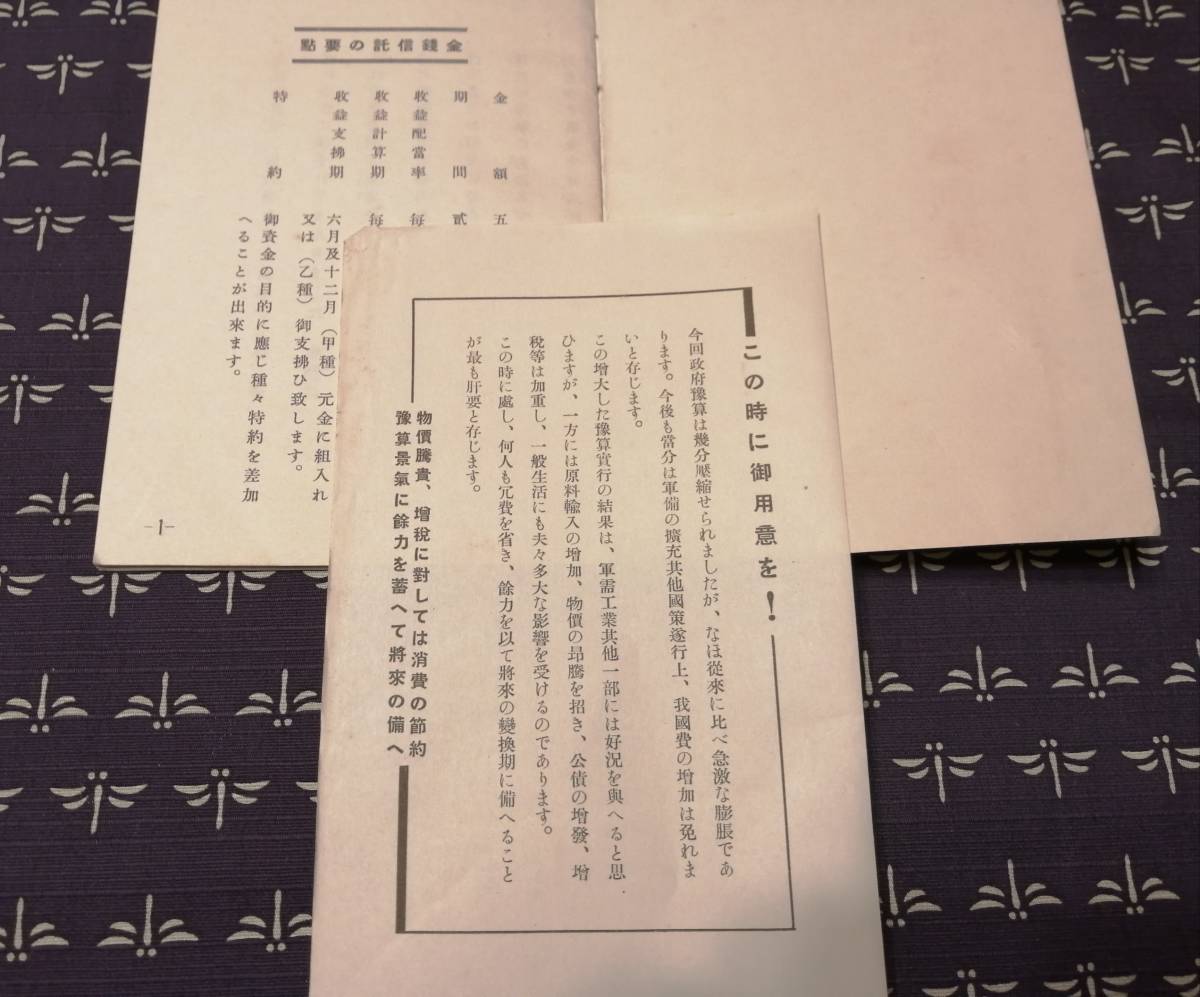 點要の託信錢金
金額 五
期間 貳
收益配當率 每
收益計算期 每
收益支拂期 六月及十二月（甲種）元金に組入れ
又は（乙種）御支拂ひ致します。
特約 御資金の目的に應じ種々特約を差加
へることが出來ます。
-1-
この時に御用意を！
今回政府豫算は幾分壓縮せられましたが、なほ從來に比べ急激な膨脹であ
ります。今後も當分は軍備の擴充其他國策遂行上、我國費の增加は免れま
いと存じます。
この增大した豫算實行の結果は、軍需工業其他一部には好況を與へると思
ひますが、一方には原料輸入の增加、物價の昂騰を招き、公債の增發、增
稅等は加重し、一般生活にも夫々多大な影響を受けるのであります。
この時に處し、何人も冗費を省き、餘力を以て將來の變換期に備へること
が最も肝要と存じます。
物價騰貴、增稅に對しては消費の節約
豫算景氣に餘力を蓄へて將來の備へ